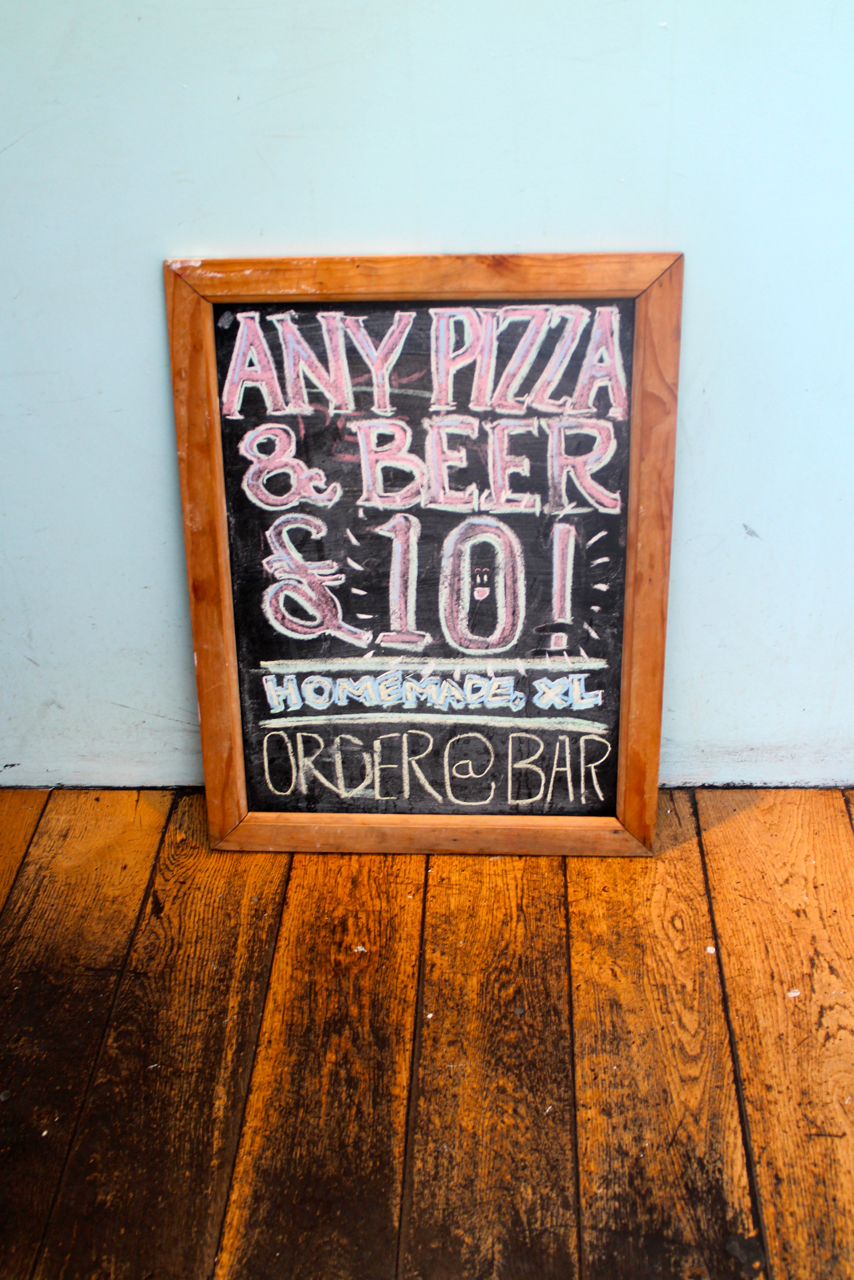 ANY PIZZA
& BEER
£10!
HOMEMADE, XL
ORDER @ BAR